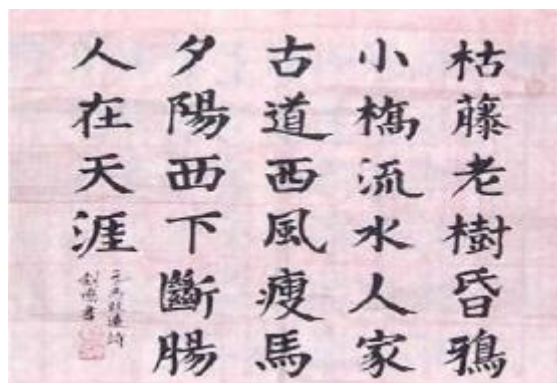 枯藤老樹昏鴉
小橋流水人家
古道西風瘦馬
夕陽西下斷腸
人在天涯
元馬致遠詩